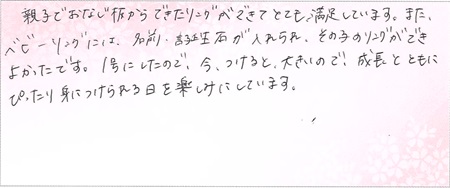 親子でおなじ板からできたリングができてとても満足しています。また、
ベビーリングには、名前・誕生石が入れられ、その子のリングができ
よかったです。1号にしたので、今、つけると、大きいので、成長とともに
ぴったり身につけられる日を楽しみにしています。